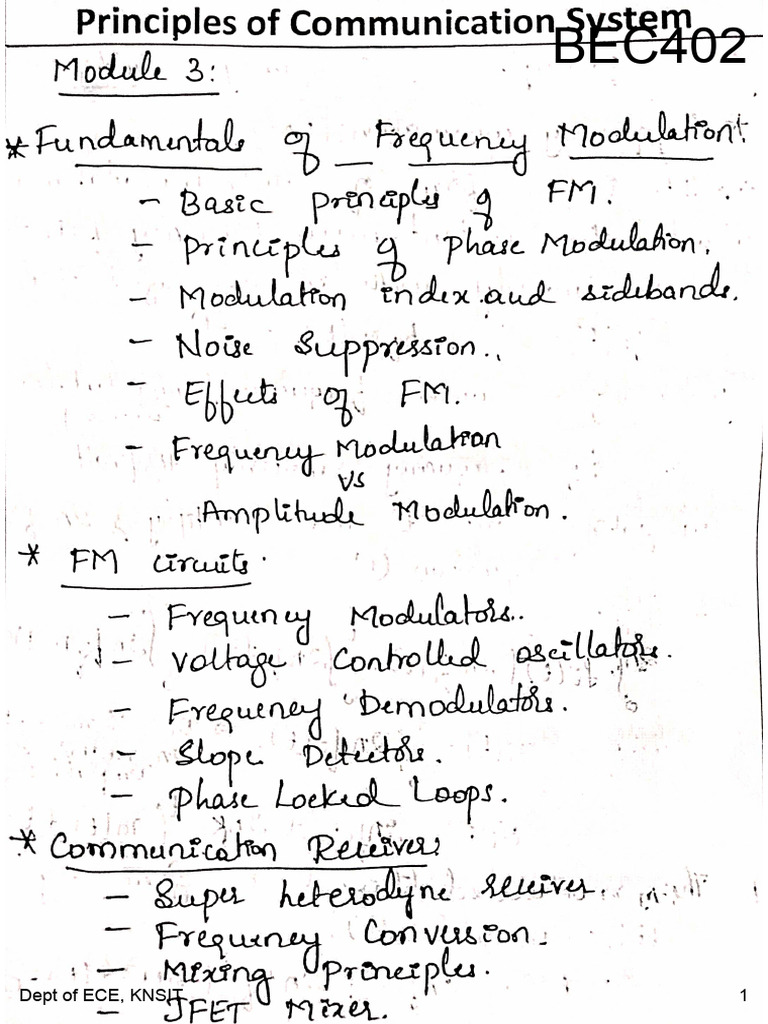 Principles of Communication System
BEC402
Module 3:
* Fundamentals of Frequency Modulation:
- Basic principles of FM.
- principles of phase Modulation.
- Modulation index and sidebands.
- Noise Suppression.
- Effects of FM.
- Frequency Modulation
vs
Amplitude Modulation.
* FM circuits.
- Frequency Modulators.
- Voltage Controlled oscillators.
- Frequency Demodulators.
- Slope Detectors.
- phase Locked Loops.
* Communication Receiver:
- Super heterodyne receiver.
- Frequency Conversion.
- Mixing principles.
- JFET Mixer.
Dept of ECE, KNSIT
1